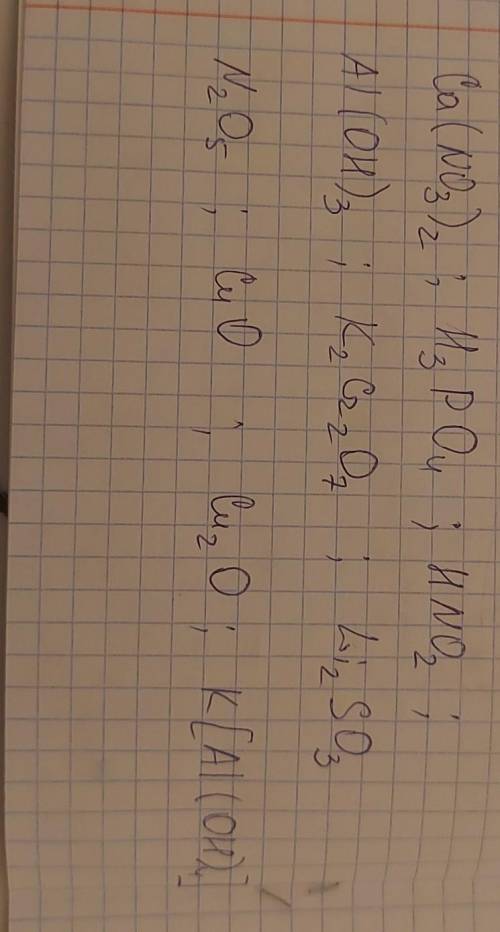 Ca(NO₃)₂ ; H₃PO₄ ; HNO₂ ;
Al(OH)₃ ; K₂Cr₂O₇ ; Li₂SO₃
N₂O₅ ; CuO ; Cu₂O ; K[Al(OH)₄]